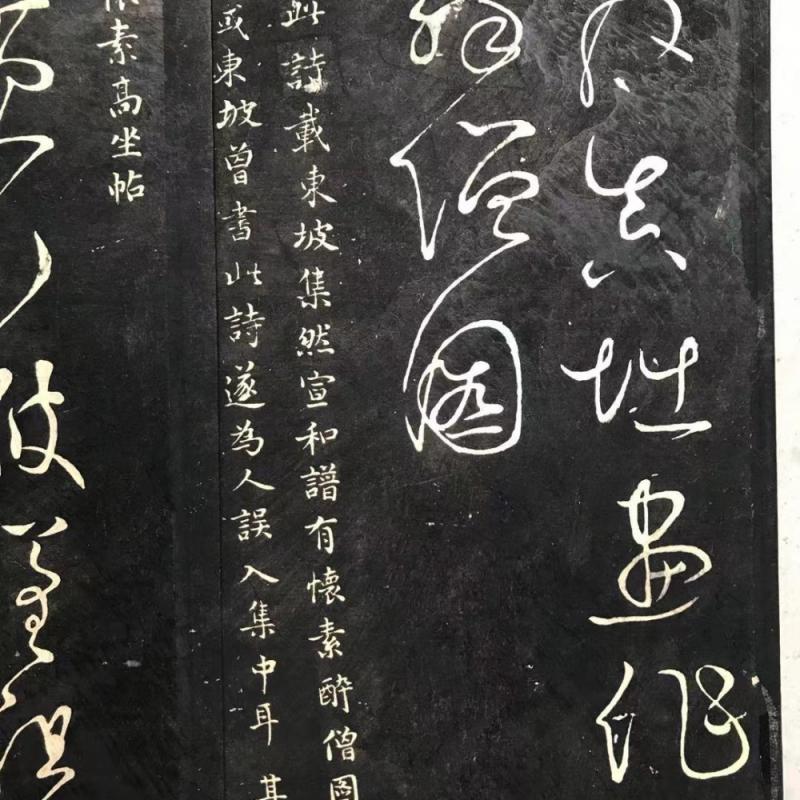 真堪畫作
醉僧圖
此詩載東坡集然宣和譜有懷素醉僧圖
或東坡曾書此詩遂為人誤入集中耳其
懷素高坐帖